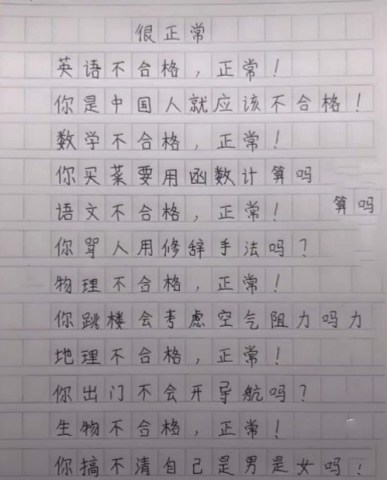 很正常
英语不合格，正常！
你是中国人就应该不合格！
数学不合格，正常！
你买菜要用函数计算吗
语文不合格，正常！ 算吗
你骂人用修辞手法吗？
物理不合格，正常！
你跳楼会考虑空气阻力吗力
地理不合格，正常！
你出门不会开导航吗？
生物不合格，正常！
你搞不清自己是男是女吗！